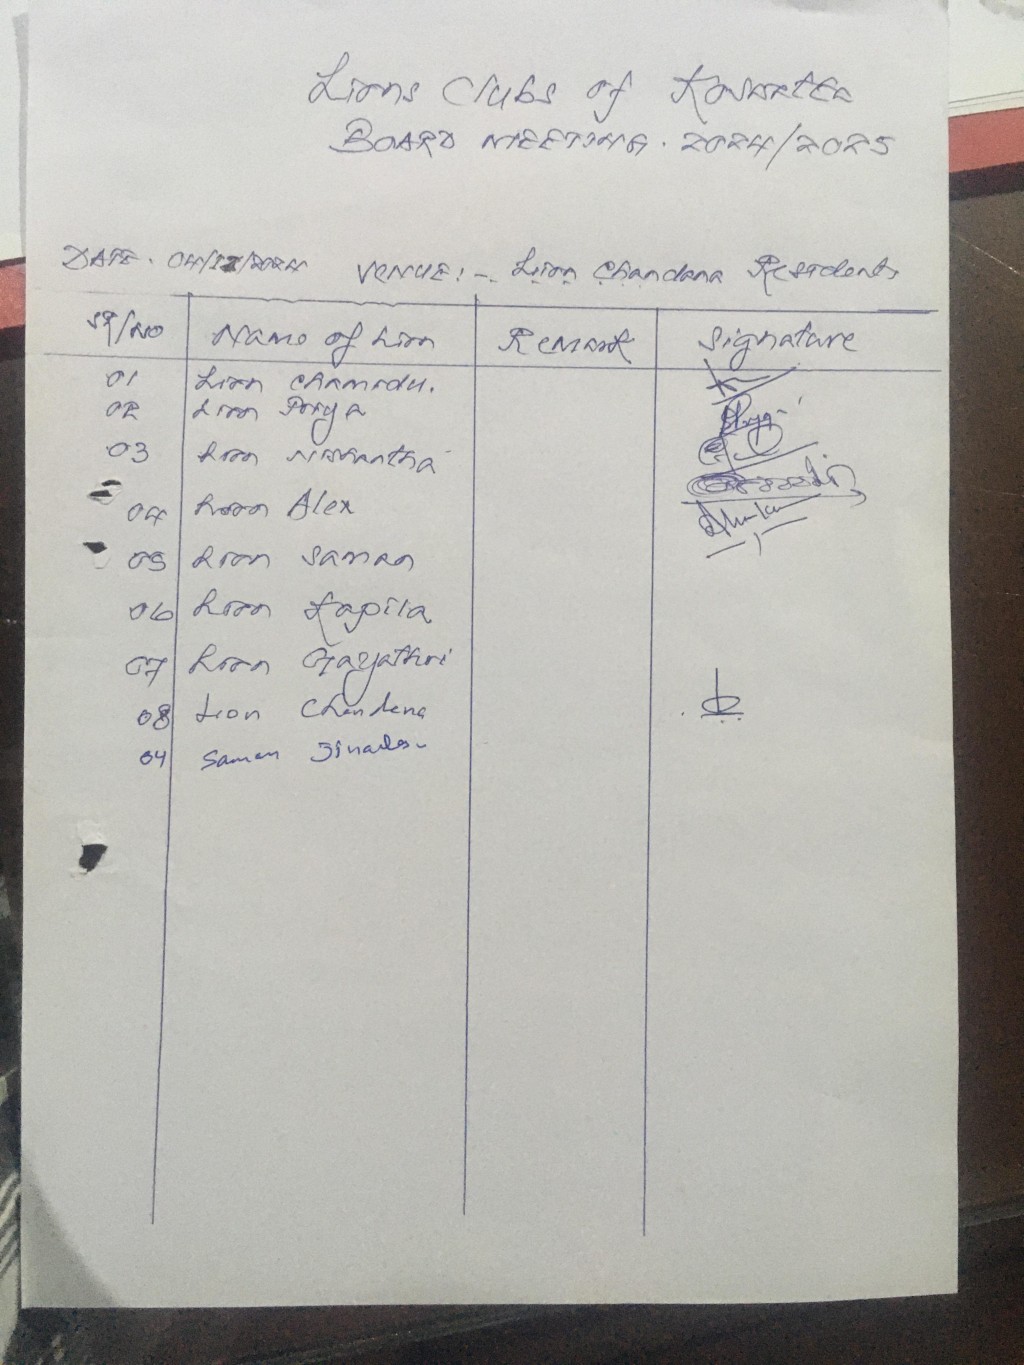 Lions Clubs of
BOARD MEETING. 2024/2025
DATE. 04/12/2024 VENUE:- Lion Chandana Residents
SR/NO Name of Lion Remark Signature
01 Lion Chamidu.
02 Lion Priya
03 Lion Nishantha
04 Lion Alex
05 Lion Saman
06 Lion Kapila
07 Lion Gayathri
08 Lion Chandana
04 Saman